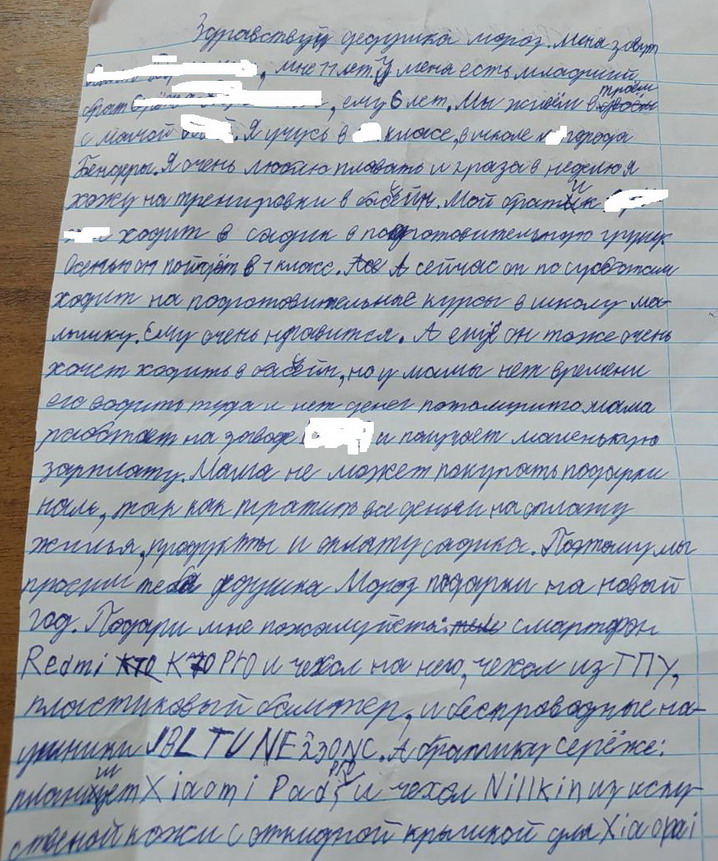 Здравствуй дедушка мороз. Меня зовут
, мне 11 лет У меня есть младший
брат , ему 6 лет. Мы живём в троём
с мамой . Я учусь в класс, в школе города
Бендеры. Я очень люблю плавать и 2 раза в неделю я
хожу на тренировки в басейн. Мой братик
ходит в садик в подготовительную групу.
Осенью он пойдёт в 1 класс. А сейчас он по субботам
ходит на подготовительные курсы в школу ма-
лышку. Ему очень нравится. А ещё он тоже очень
хочет ходить в басейн, но у мамы нет времени
его водить туда и нет денег потому что мама
работает на заводе и получает маленькую
зарплату. Мама не может покупать подарки
нам, так как тратит все деньги на оплату
жилья, продукты и оплату садика. Поэтому мы
просим тебя дедушка Мороз подарки на новый
год. Подари мне пожалуйста: смартфон
Redmi K70 Pro и чехол на него, чехол из ТПУ,
пластиковый бампер, и беспроводные на-
ушники JBL TUNE 230NC. А братику серёже:
планшет Xiaomi Pad и чехол Nillkin из иску-
ственой кожи с откидной крышкой для